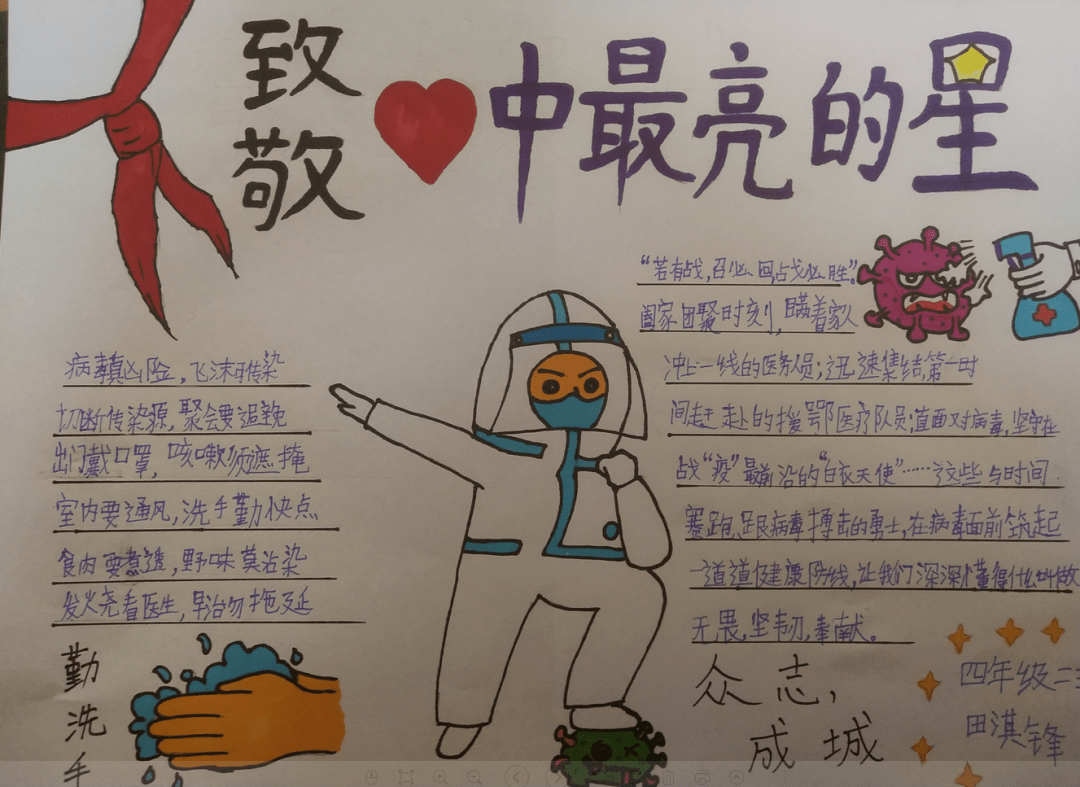 致敬
中最亮的星
病毒真凶险，飞沫可传染
切断传染源，聚会要避免
出门戴口罩，咳嗽须遮掩
室内要通风，洗手勤快点
食肉要煮透，野味莫沾染
发火尧看医生，早治勿拖延
勤洗手
“若有战，召必回，战必胜”。
阖家团聚时刻，瞒着家人
冲上一线的医务人员；迅速集结，第一时
间赶赴的援鄂医疗队员；直面对病毒，坚守在
战“疫”最前沿的“白衣天使”……这些与时间
赛跑、跟病毒搏击的勇士，在病毒面前筑起
一道道健康防线，让我们深深懂得什么叫做
无畏，坚韧，奉献。
众志，
成城
四年级二
田淇锋